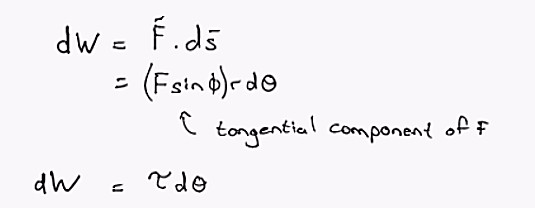 dW = F̄ . ds̄
= (F sin ϕ) r dθ
tangential component of F
dW = τ dθ